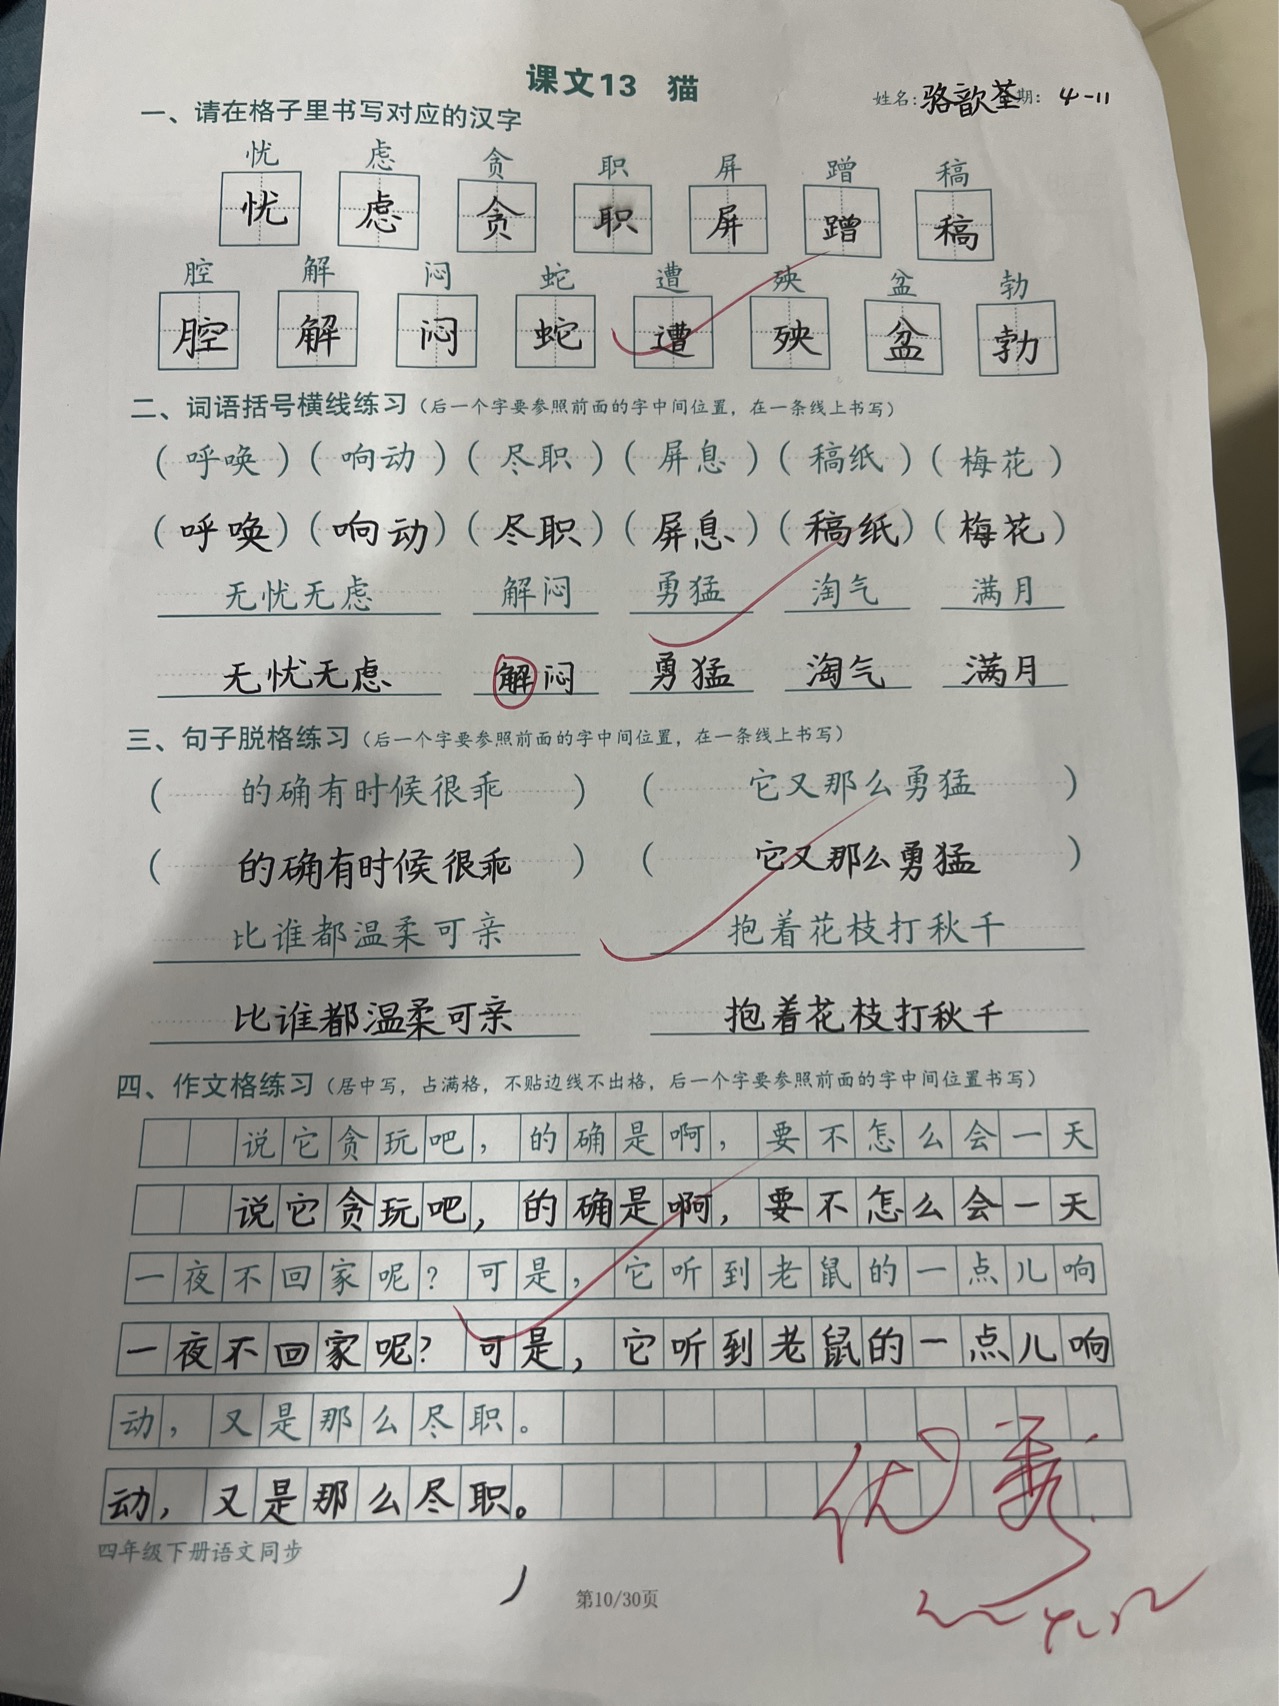 课文13 猫
姓名：骆歆荃期：4-11
一、请在格子里书写对应的汉字
忧 虑 贪 职 屏 蹭 稿
忧 虑 贪 职 屏 蹭 稿
腔 解 闷 蛇 遭 殃 盆 勃
腔 解 闷 蛇 遭 殃 盆 勃
二、词语括号横线练习（后一个字要参照前面的字中间位置，在一条线上书写）
（呼唤）（响动）（尽职）（屏息）（稿纸）（梅花）
（呼唤）（响动）（尽职）（屏息）（稿纸）（梅花）
无忧无虑 解闷 勇猛 淘气 满月
无忧无虑 解闷 勇猛 淘气 满月
三、句子脱格练习（后一个字要参照前面的字中间位置，在一条线上书写）
（的确有时候很乖）（它又那么勇猛）
（的确有时候很乖）（它又那么勇猛）
比谁都温柔可亲 抱着花枝打秋千
比谁都温柔可亲 抱着花枝打秋千
四、作文格练习（居中写，占满格，不贴边线不出格，后一个字要参照前面的字中间位置书写）
说它贪玩吧，的确是啊，要不怎么会一天
说它贪玩吧，的确是啊，要不怎么会一天
一夜不回家呢？可是，它听到老鼠的一点儿响
一夜不回家呢？可是，它听到老鼠的一点儿响
动，又是那么尽职。
动，又是那么尽职。
优秀
四年级下册语文同步
第10/30页